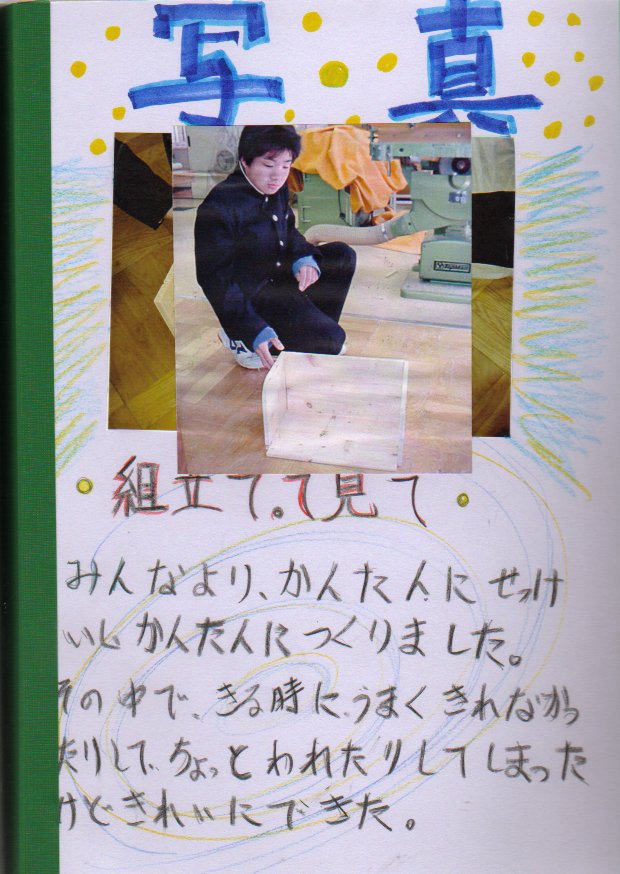 写真
・組立て。て見て・
みんなより、かんた人にせっけ
いしかんた人につくりました。
その中で、きる時に、うまくきれなかっ
たりして、ちょっとわれたりしてしまった
けどきれいにできた。